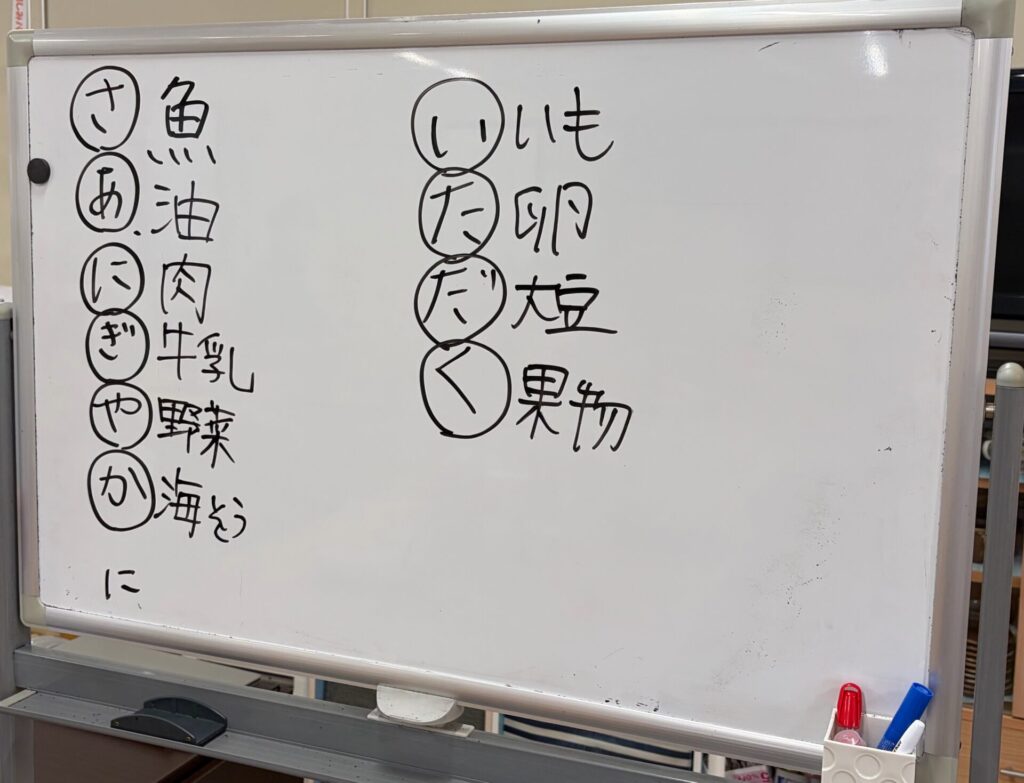 さ 魚
あ 油
に 肉
ぎ 牛乳
や 野菜
か 海そう
に
い いも
た 卵
だ 大豆
く 果物